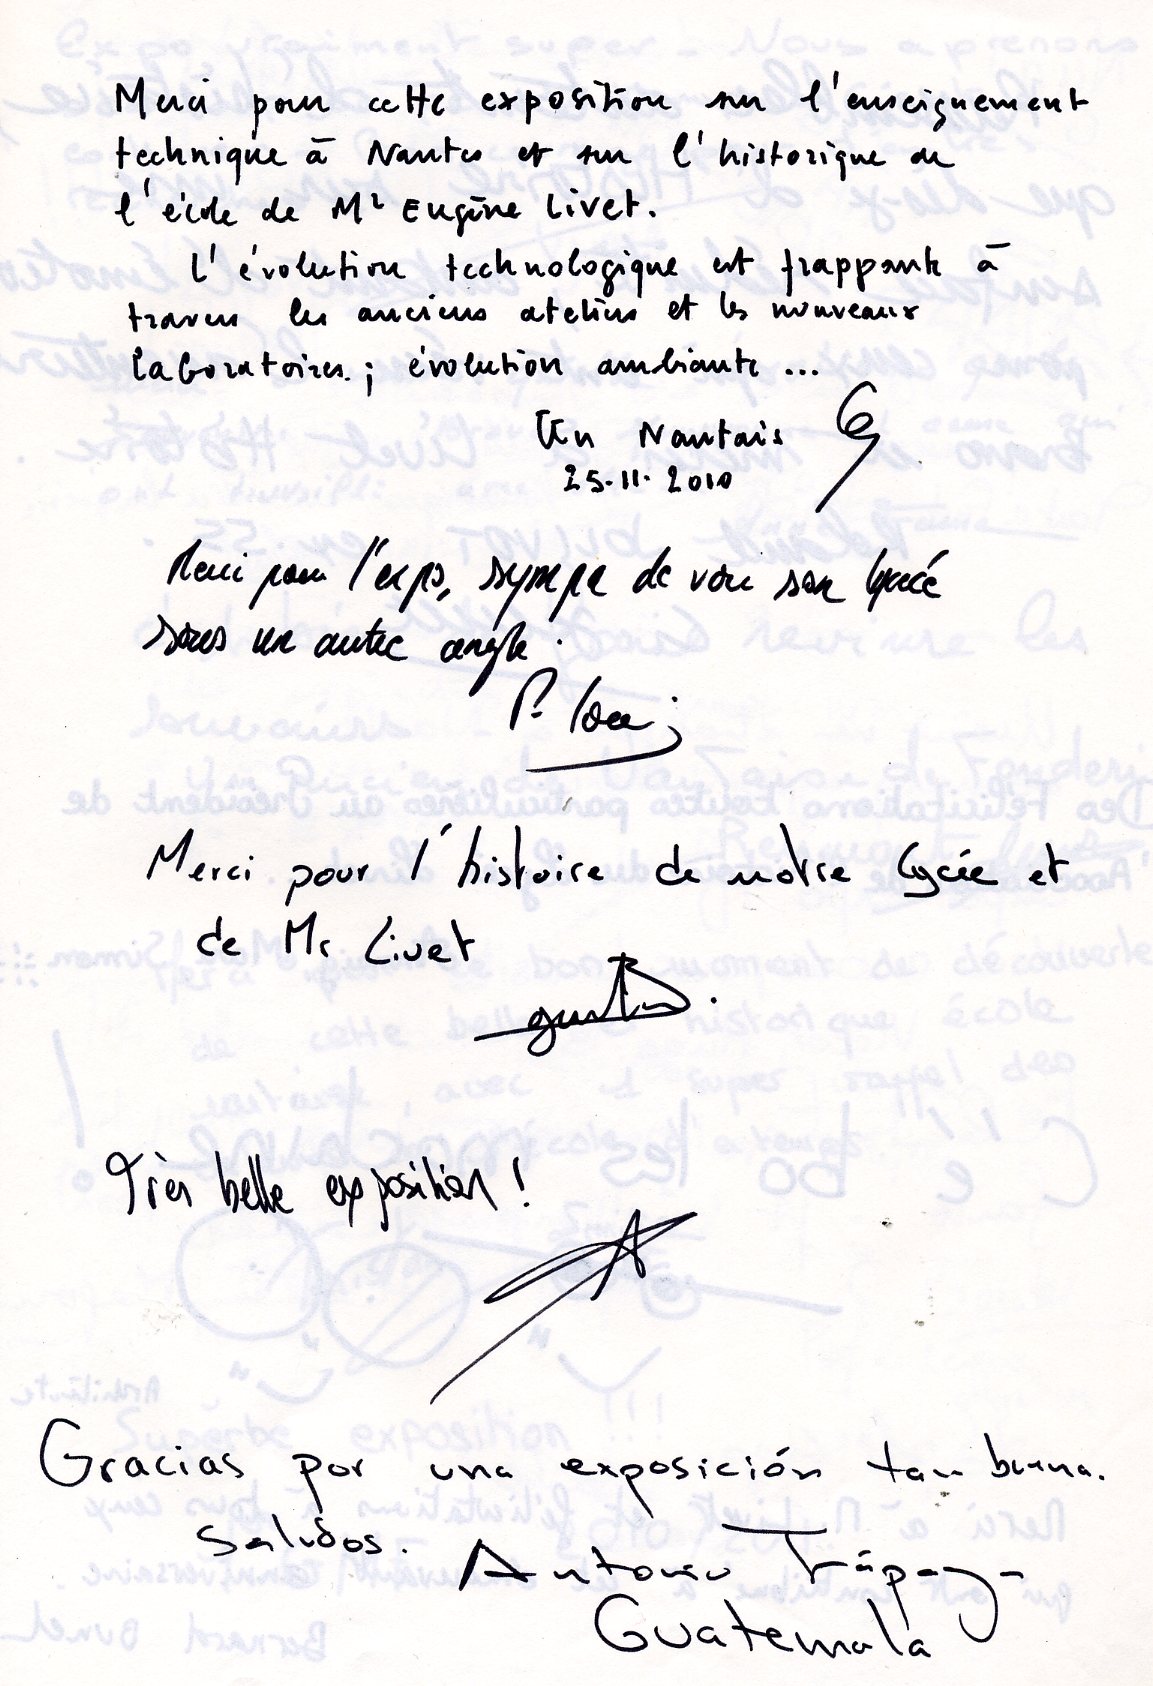 Merci pour cette exposition sur l'enseignement
technique à Nantes et sur l'historique de
l'école de Mr Eugène Livet.
L'évolution technologique est frappante à
travers les anciens ateliers et les nouveaux
laboratoires ; évolution ambiante ...
Un Nantais
25.11.2010
Merci pour l'expo, sympa de voir son lycée
sous un autre angle.
Merci pour l'histoire de notre lycée et
de Mr Livet
Très belle exposition !
Gracias por una exposición tan buena.
Saludos.
Antonio Trápaga
Guatemala